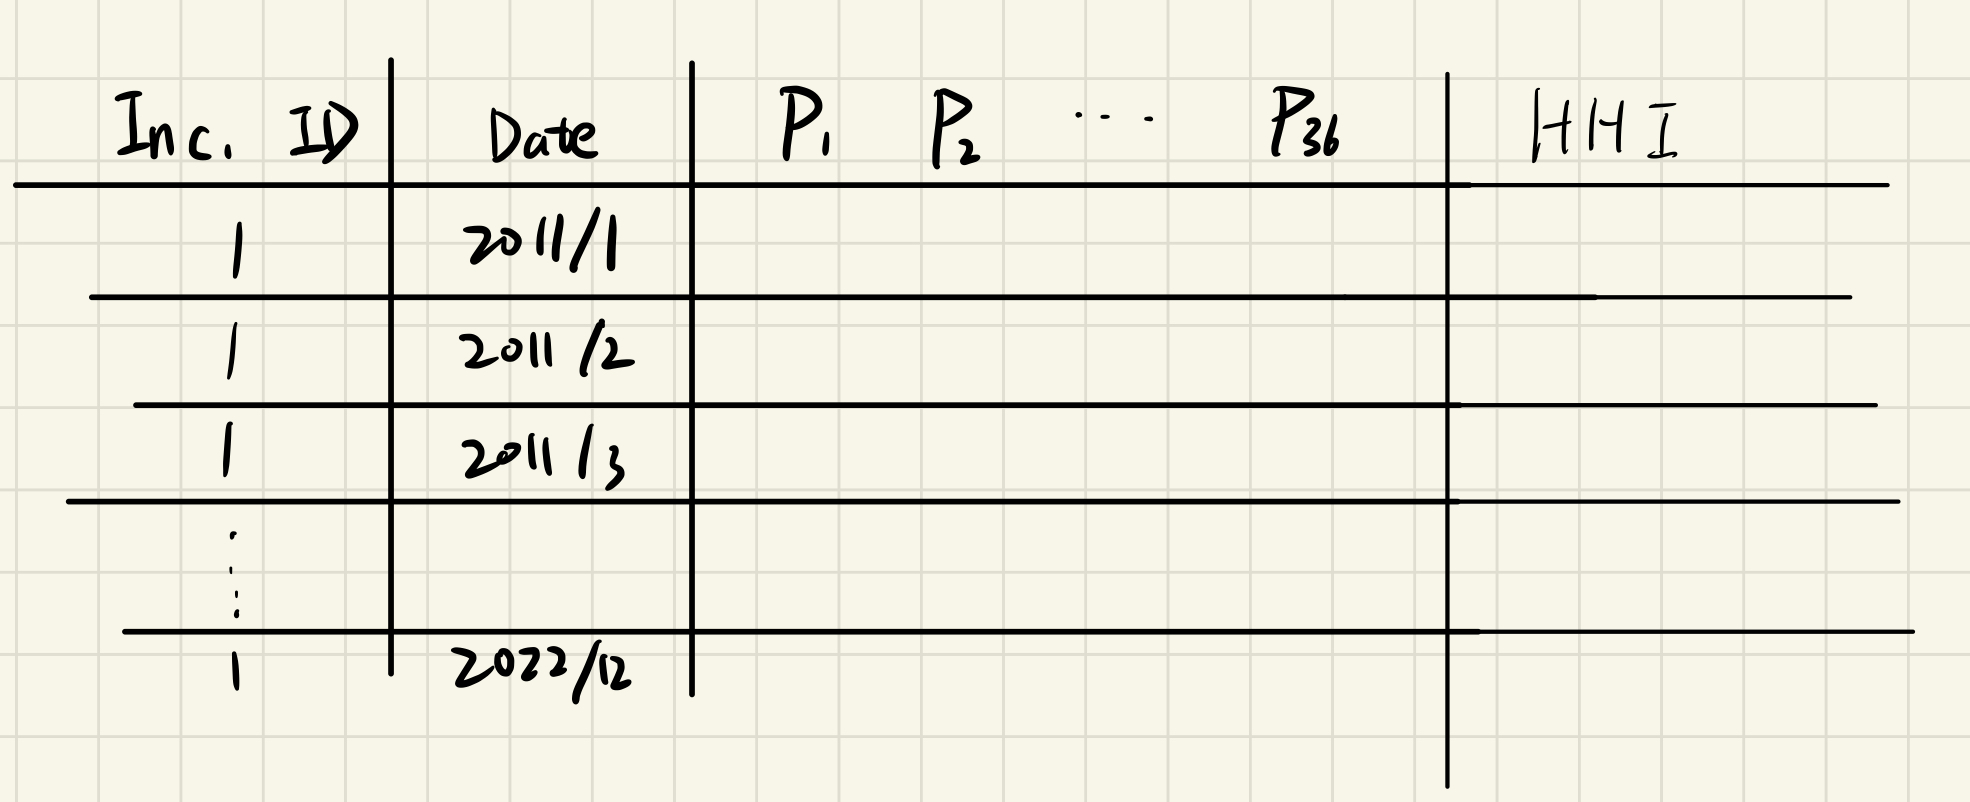 Inc. ID Date P1 P2 ... P36 HHI
1 2011/1
1 2011/2
1 2011/3
⋮
1 2022/12